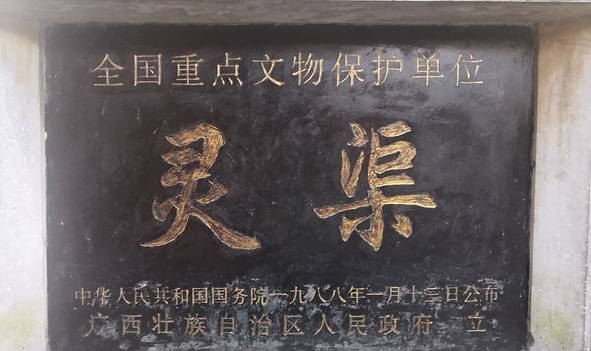 全国重点文物保护单位
灵渠
中华人民共和国国务院一九八八年一月十三日公布
广西壮族自治区人民政府 立